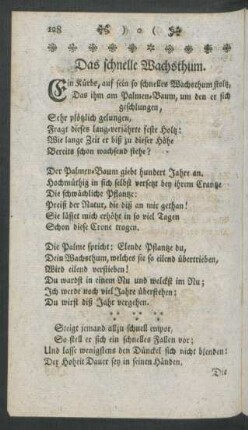 128 ) o (
Das schnelle Wachsthum.
Ein Kürbs, auf sein so schnelles Wachsthum stoltz,
Das ihm am Palmen-Baum, um den er sich
geschlungen,
Sehr plötzlich gelungen,
Fragt dieses lang-verjährte feste Holtz:
Wie lange Zeit er biß zu dieser Höhe
Bereits schon wachsend stehe?
Der Palmen-Baum giebt hundert Jahre an.
Hochmüthig in sich selbst versetzt bey ihrem Crantze
Die schwächliche Pflantze:
Preiß der Natur, die diß an mir gethan!
Sie lässet mich erhöht in so viel Tagen
Schon diese Crone tragen.
Die Palme spricht: Elende Pflantze du,
Dein Wachsthum, welches sie so eilend übertrieben,
Wird eilend verstieben!
Du wardst in einem Nu und welckst im Nu;
Ich werde noch viel Jahre überstehen;
Du wirst diß Jahr vergehen.
Steigt jemand allzu schnell empor,
So stell er sich ein schnelles Fallen vor;
Und lasse wenigstens den Dünckel sich nicht blenden:
Der Hoheit Dauer sey in seinen Händen.
Die